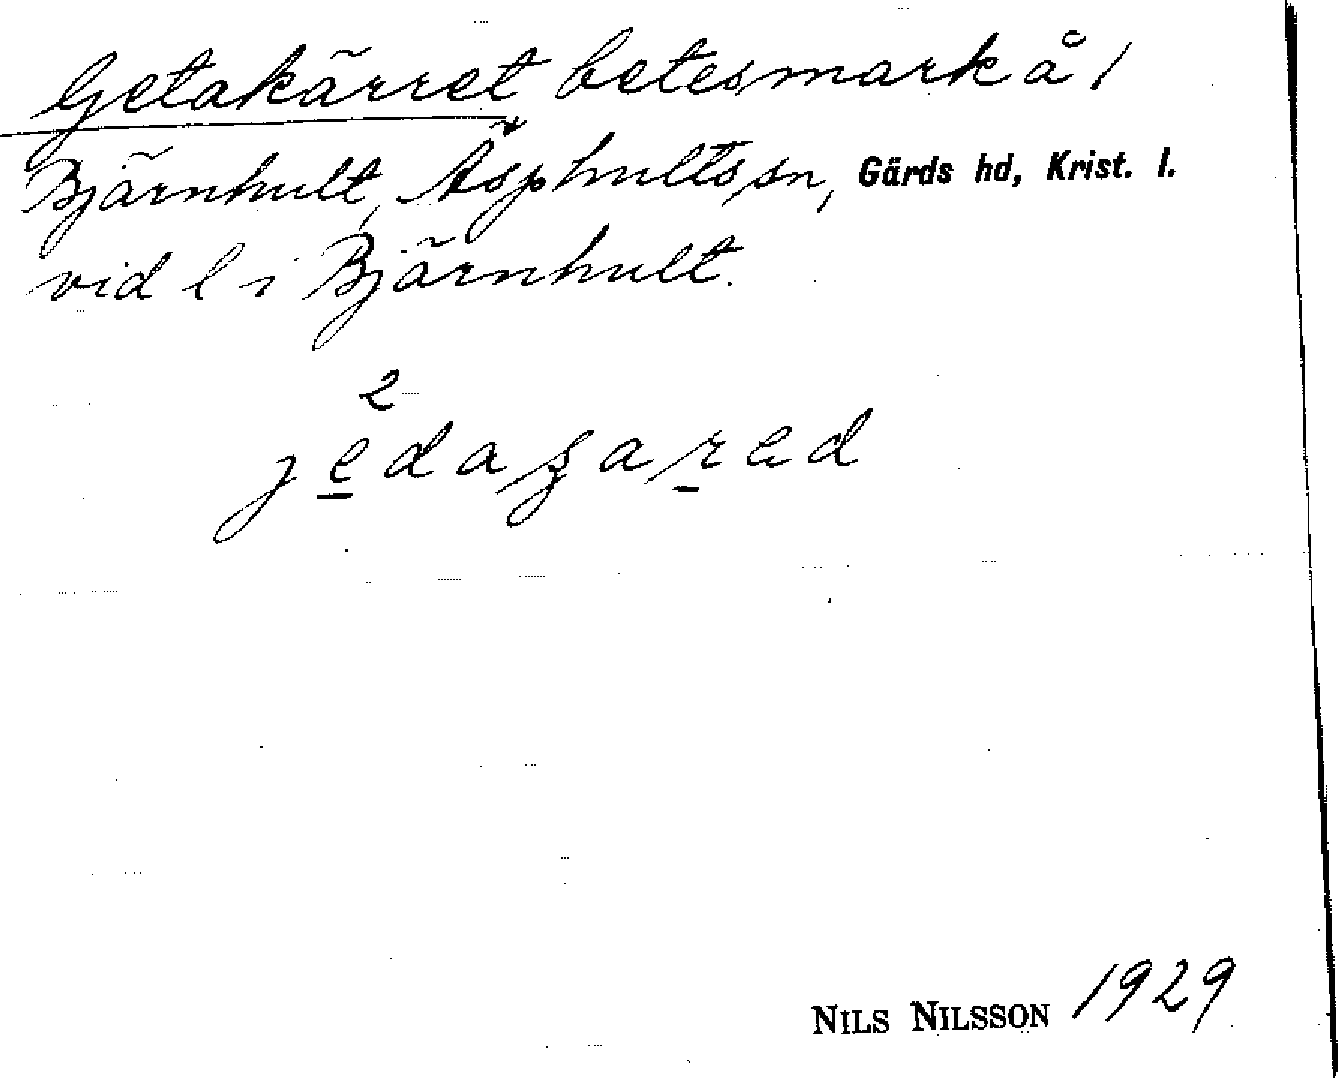 Getakärret betesmark å 1
Bjärnhult, Äsphults sn, Gärds hd, Krist. l.
vid l i Bjärnhult.
2
NILS NILSSON 1929